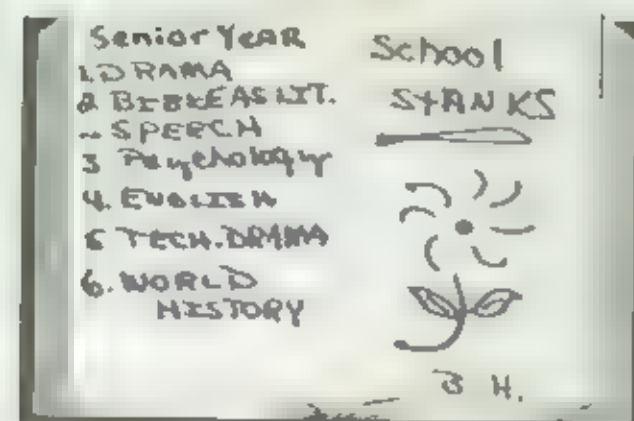 Senior YEAR
1. DRAMA
2 BIBLE AS LIT.
~ SPEECH
3 Psychology
4. ENGLISH
5 TECH. DRAMA
6. WORLD
HISTORY
School
STANKS
B H.